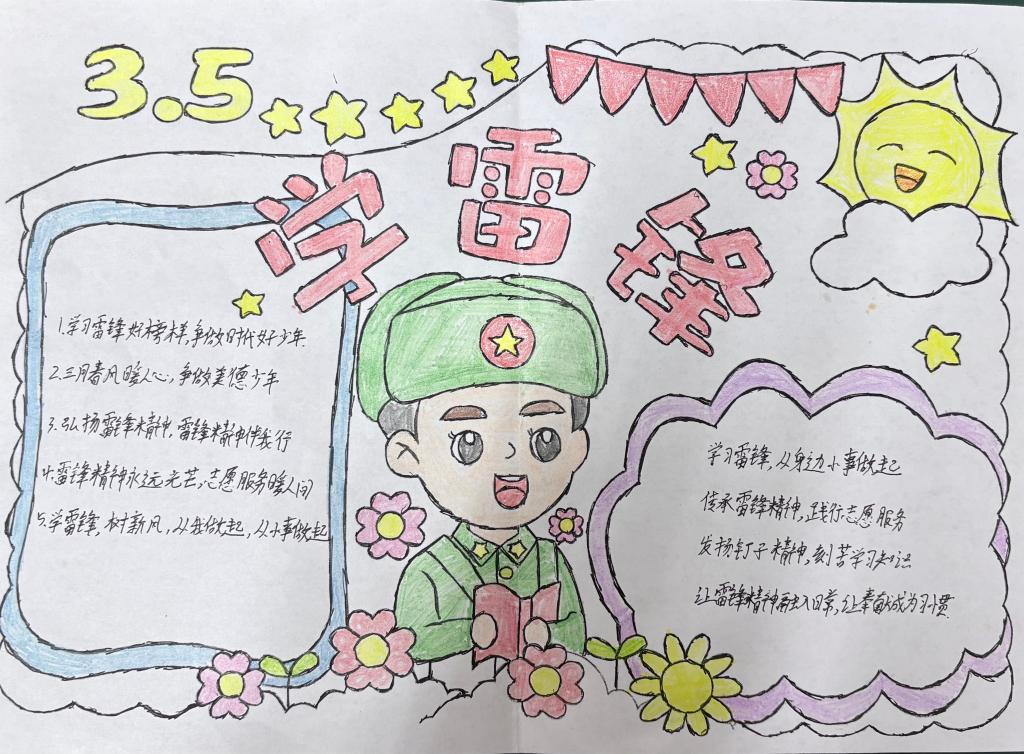 3.5
学雷锋
1.学习雷锋好榜样,争做时代好少年.
2.三月春风暖人心,争做美德少年
3.弘扬雷锋精神,雷锋精神伴我行
4.雷锋精神永远光芒,志愿服务暖人间
5.学雷锋,树新风,从我做起,从小事做起
学习雷锋,从身边小事做起
传承雷锋精神,践行志愿服务
发扬钉子精神,刻苦学习知识
让雷锋精神融入日常,让奉献成为习惯.